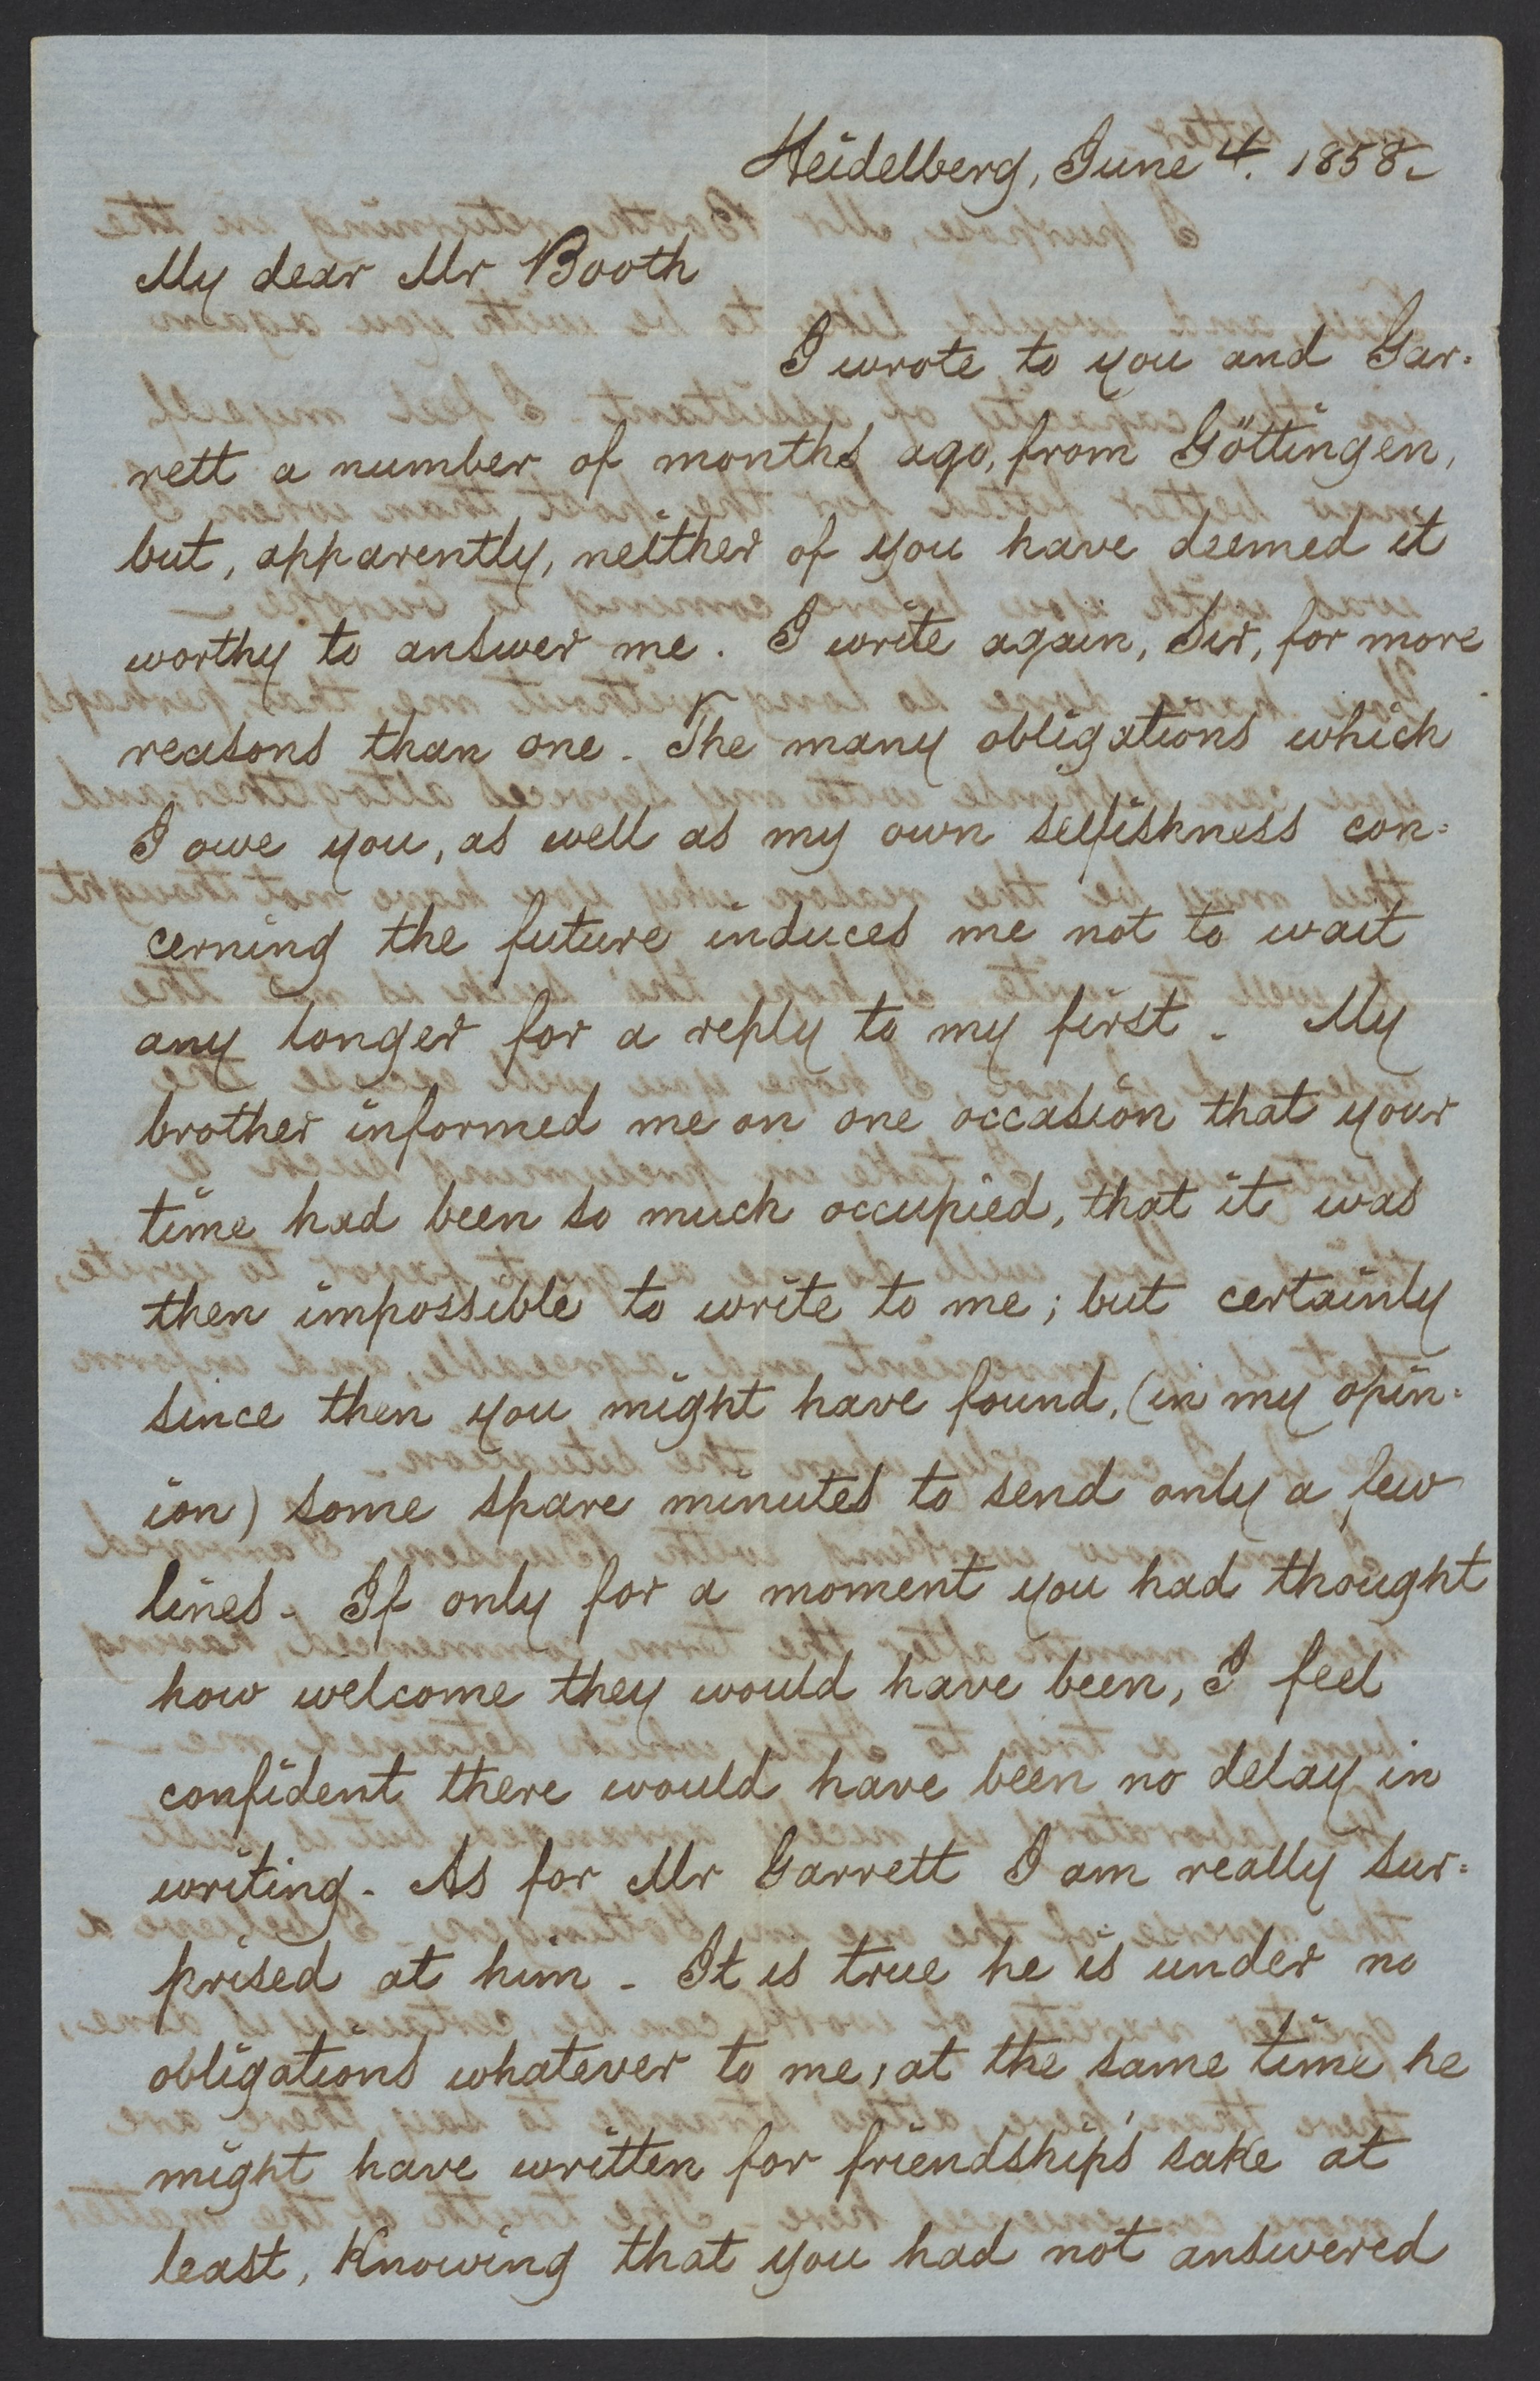 Heidelberg, June 4. 1858.
My dear Mr Booth
I wrote to you and Gar=
rett a number of months ago, from Göttingen,
but, apparently, neither of you have deemed it
worthy to answer me. I write again, Sir, for more
reasons than one. The many obligations which
I owe you, as well as my own selfishness con=
cerning the future induces me not to wait
any longer for a reply to my first. My
brother informed me on one occasion that your
time had been so much occupied, that it was
then impossible to write to me; but certainly
since then you might have found, (in my opin=
ion) some spare minutes to send only a few
lines. If only for a moment you had thought
how welcome they would have been, I feel
confident there would have been no delay in
writing. As for Mr Garrett I am really sur=
prised at him. It is true he is under no
obligations whatever to me, at the same time he
might have written for friendship's sake at
least, knowing that you had not answered